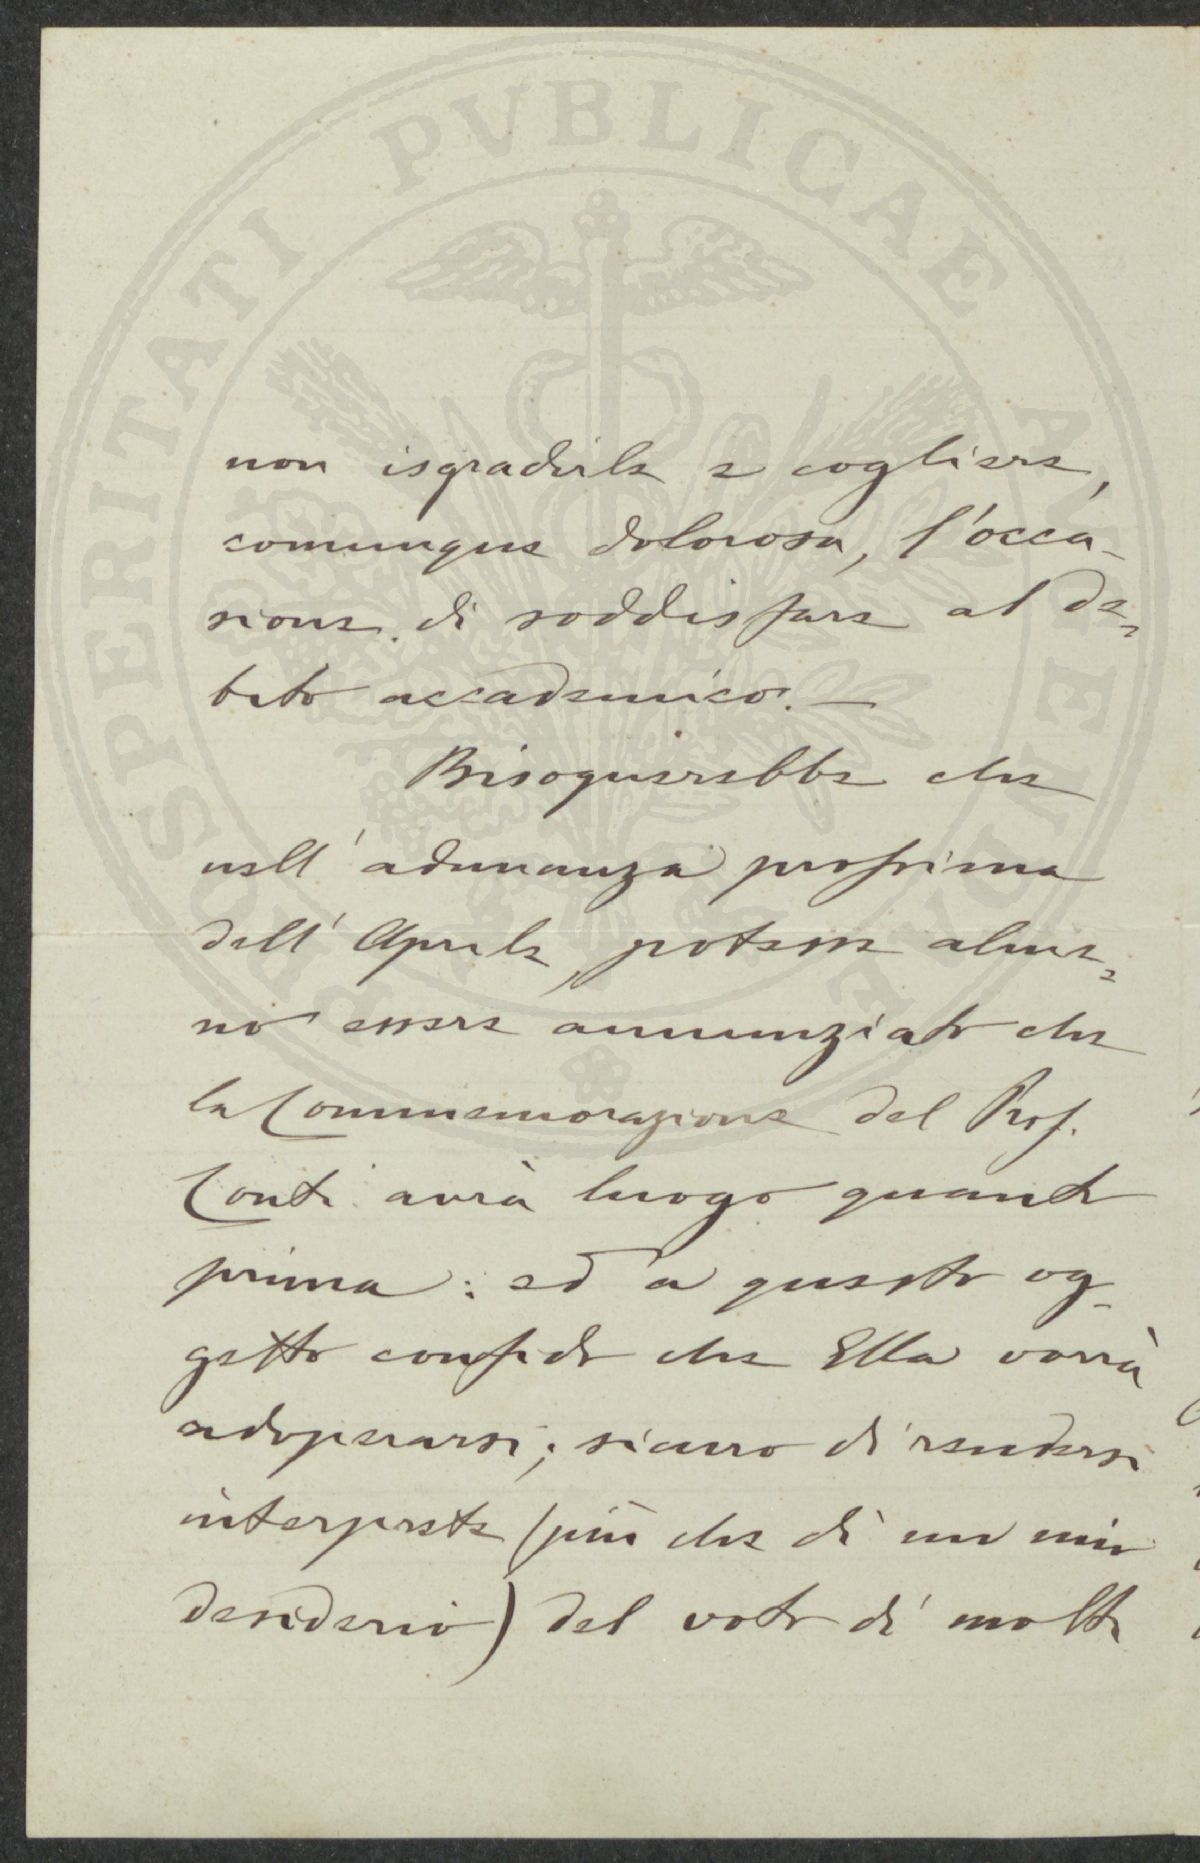 PROSPERITATI PVBLICAE AVGENDAE
non isgradirle e cogliere,
comunque dolorosa, l'occa-
sione di soddisfare al de=
bito accademico. —
Bisognerebbe che
nell' adunanza prossima
dell' Aprile, potesse alme=
no essere annunziato che
la Commemorazione del Prof.
Conti avrà luogo quanto
prima: ed a questo og-
getto confido che Ella vorrà
adoperarsi; sicuro di rendersi
interprete (più che di un mio
desiderio) del voto di molti